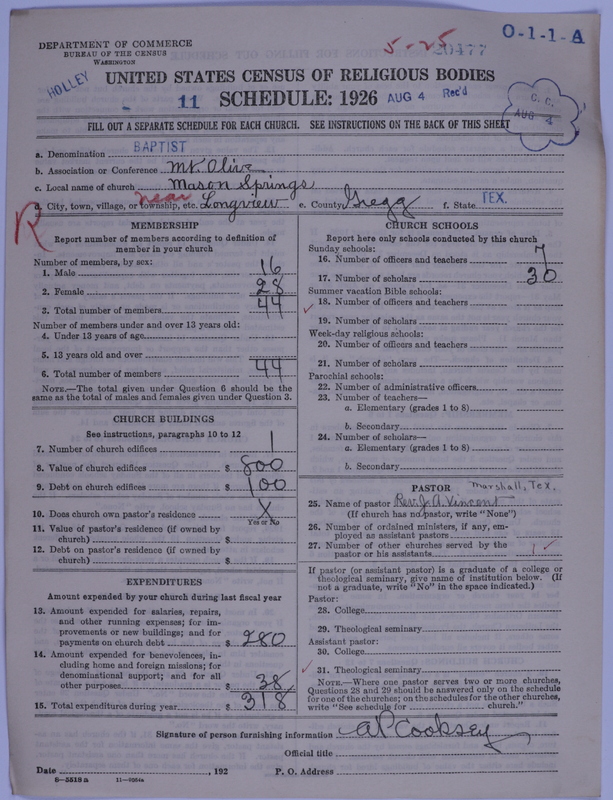 O-1-1-A
5-25 20477
DEPARTMENT OF COMMERCE
BUREAU OF THE CENSUS
WASHINGTON
HOLLEY
UNITED STATES CENSUS OF RELIGIOUS BODIES
- 11 SCHEDULE: 1926 AUG 4 Rec'd
C. C. AUG 4
FILL OUT A SEPARATE SCHEDULE FOR EACH CHURCH. SEE INSTRUCTIONS ON THE BACK OF THIS SHEET
a. Denomination BAPTIST
b. Association or Conference Mt. Olive
c. Local name of church Mason Springs
d. City, town, village, or township, etc. near Longview e. County Gregg f. State TEX.
R
MEMBERSHIP
Report number of members according to definition of
member in your church
Number of members, by sex:
1. Male 16
2. Female 28
3. Total number of members 44
Number of members under and over 13 years old:
4. Under 13 years of age
5. 13 years old and over
6. Total number of members 44
NOTE.—The total given under Question 6 should be the
same as the total of males and females given under Question 3.
CHURCH BUILDINGS
See instructions, paragraphs 10 to 12
7. Number of church edifices 1
8. Value of church edifices $ 800
9. Debt on church edifices $ 100
10. Does church own pastor's residence X
Yes or No
11. Value of pastor's residence (if owned by
church) $
12. Debt on pastor's residence (if owned by
church) $
EXPENDITURES
Amount expended by your church during last fiscal year
13. Amount expended for salaries, repairs,
and other running expenses; for im-
provements or new buildings; and for
payments on church debt $ 280
14. Amount expended for benevolences, in-
cluding home and foreign missions; for
denominational support; and for all
other purposes $ 38
15. Total expenditures during year $ 318
CHURCH SCHOOLS
Report here only schools conducted by this church
Sunday schools:
16. Number of officers and teachers 7
17. Number of scholars 30
Summer vacation Bible schools:
✓ 18. Number of officers and teachers
19. Number of scholars
Week-day religious schools:
20. Number of officers and teachers
21. Number of scholars
Parochial schools:
22. Number of administrative officers
23. Number of teachers—
a. Elementary (grades 1 to 8)
b. Secondary
24. Number of scholars—
a. Elementary (grades 1 to 8)
b. Secondary
PASTOR Marshall, Tex.
25. Name of pastor Rev. J. A. Vincent
(If church has no pastor, write "None")
26. Number of ordained ministers, if any, em-
ployed as assistant pastors
27. Number of other churches served by the
pastor or his assistants 1 ✓
If pastor (or assistant pastor) is a graduate of a college or
theological seminary, give name of institution below. (If
not a graduate, write "No" in the space indicated.)
Pastor:
28. College
29. Theological seminary
Assistant pastor:
30. College
✓ 31. Theological seminary
NOTE.—Where one pastor serves two or more churches,
Questions 28 and 29 should be answered only on the schedule
for one of the churches; on the schedules for the other churches,
write "See schedule for church."
Signature of person furnishing information A P Cooksey
Official title
Date , 192 P. O. Address
8-5518a 11-9054a